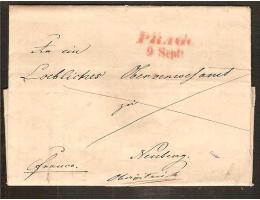 PRAG.
9 Sept:
An ein
Loebliches Oberverwesamt
zu
franco.
Neuberg